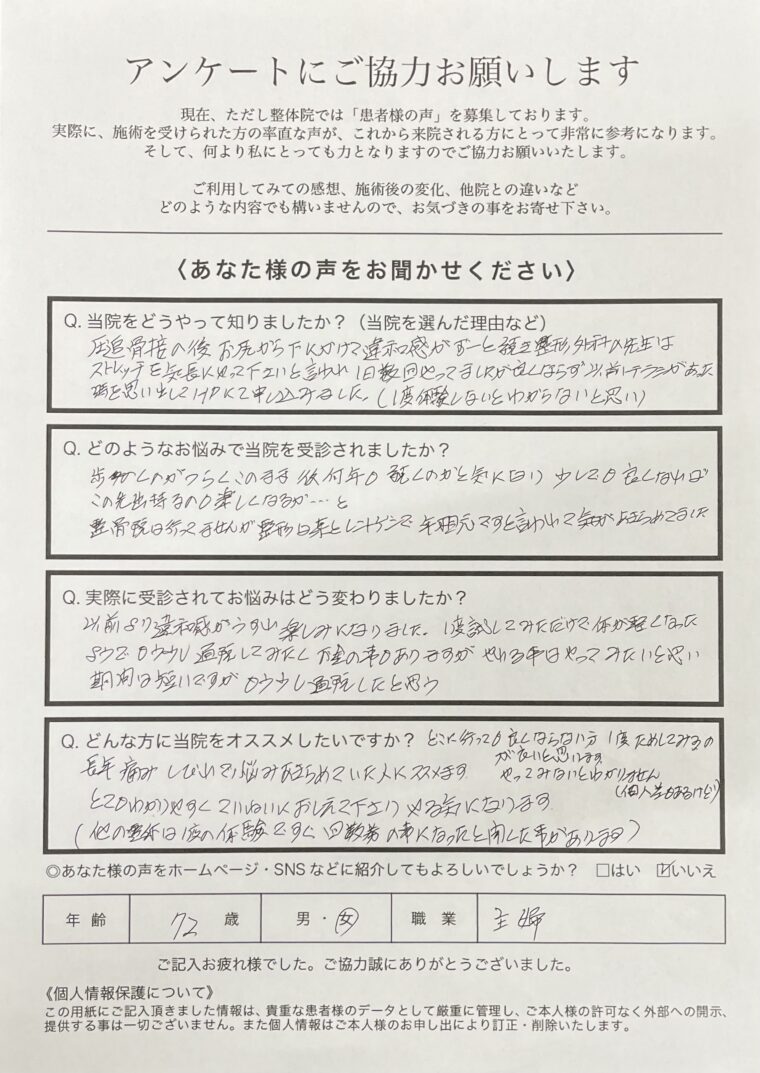 アンケートにご協力お願いします
現在、ただし整体院では「患者様の声」を募集しております。
実際に、施術を受けられた方の率直な声が、これから来院される方にとって非常に参考になります。
そして、何より私にとっても力となりますのでご協力お願いいたします。
ご利用してみての感想、施術後の変化、他院との違いなど
どのような内容でも構いませんので、お気づきの事をお寄せ下さい。
〈あなた様の声をお聞かせください〉
Q. 当院をどうやって知りましたか？（当院を選んだ理由など）
圧迫骨接の後 お尻から下にかけて違和感がずーと続き整形外科の先生は
ストレッチを気長にやって下さいと言われ 1日数回やってましたが良くならず 以前にチラシがあった
事を思い出して HPにて申し込みました。(1度体験しないとわからないと思い)
Q. どのようなお悩みで当院を受診されましたか？
歩くのがつらくこのまま 後何年も続くのかと気になり 少しでも良くなれば
この先出掛るのも楽しくなるか…と
整骨院は行ってませんが整形は薬とレントゲンで 年相元ですと言われて 気があきらめてました
Q. 実際に受診されてお悩みはどう変わりましたか？
以前より違和感がうすい 楽しみになりました。1度試してみただけで体が軽くなった
ようでもう少し通院してみたく お金の事もありますが やれる事はやってみたいと思い
期間は短いですが もう少し通院したと思う
Q. どんな方に当院をオススメしたいですか？ どこに行っても良くならない方 1度ためしてみるの
が良いと思います
長年 痛み しびれで悩みあきらめていた人にススメます やってみないとわかりません
(個人差もあるけど)
とてもわかりやすく ていねいにおしえて下さり やる気になります
(他の整体は1度の体験ですぐ 回数券の事になったと聞した事があります)
◎あなた様の声をホームページ・SNSなどに紹介してもよろしいでしょうか？ □はい ☑いいえ
年 齢 72 歳 男・女 職 業 主婦
ご記入お疲れ様でした。ご協力誠にありがとうございました。
《個人情報保護について》
この用紙にご記入頂きました情報は、貴重な患者様のデータとして厳重に管理し、ご本人様の許可なく外部への開示、
提供する事は一切ございません。また個人情報はご本人様のお申し出により訂正・削除いたします。